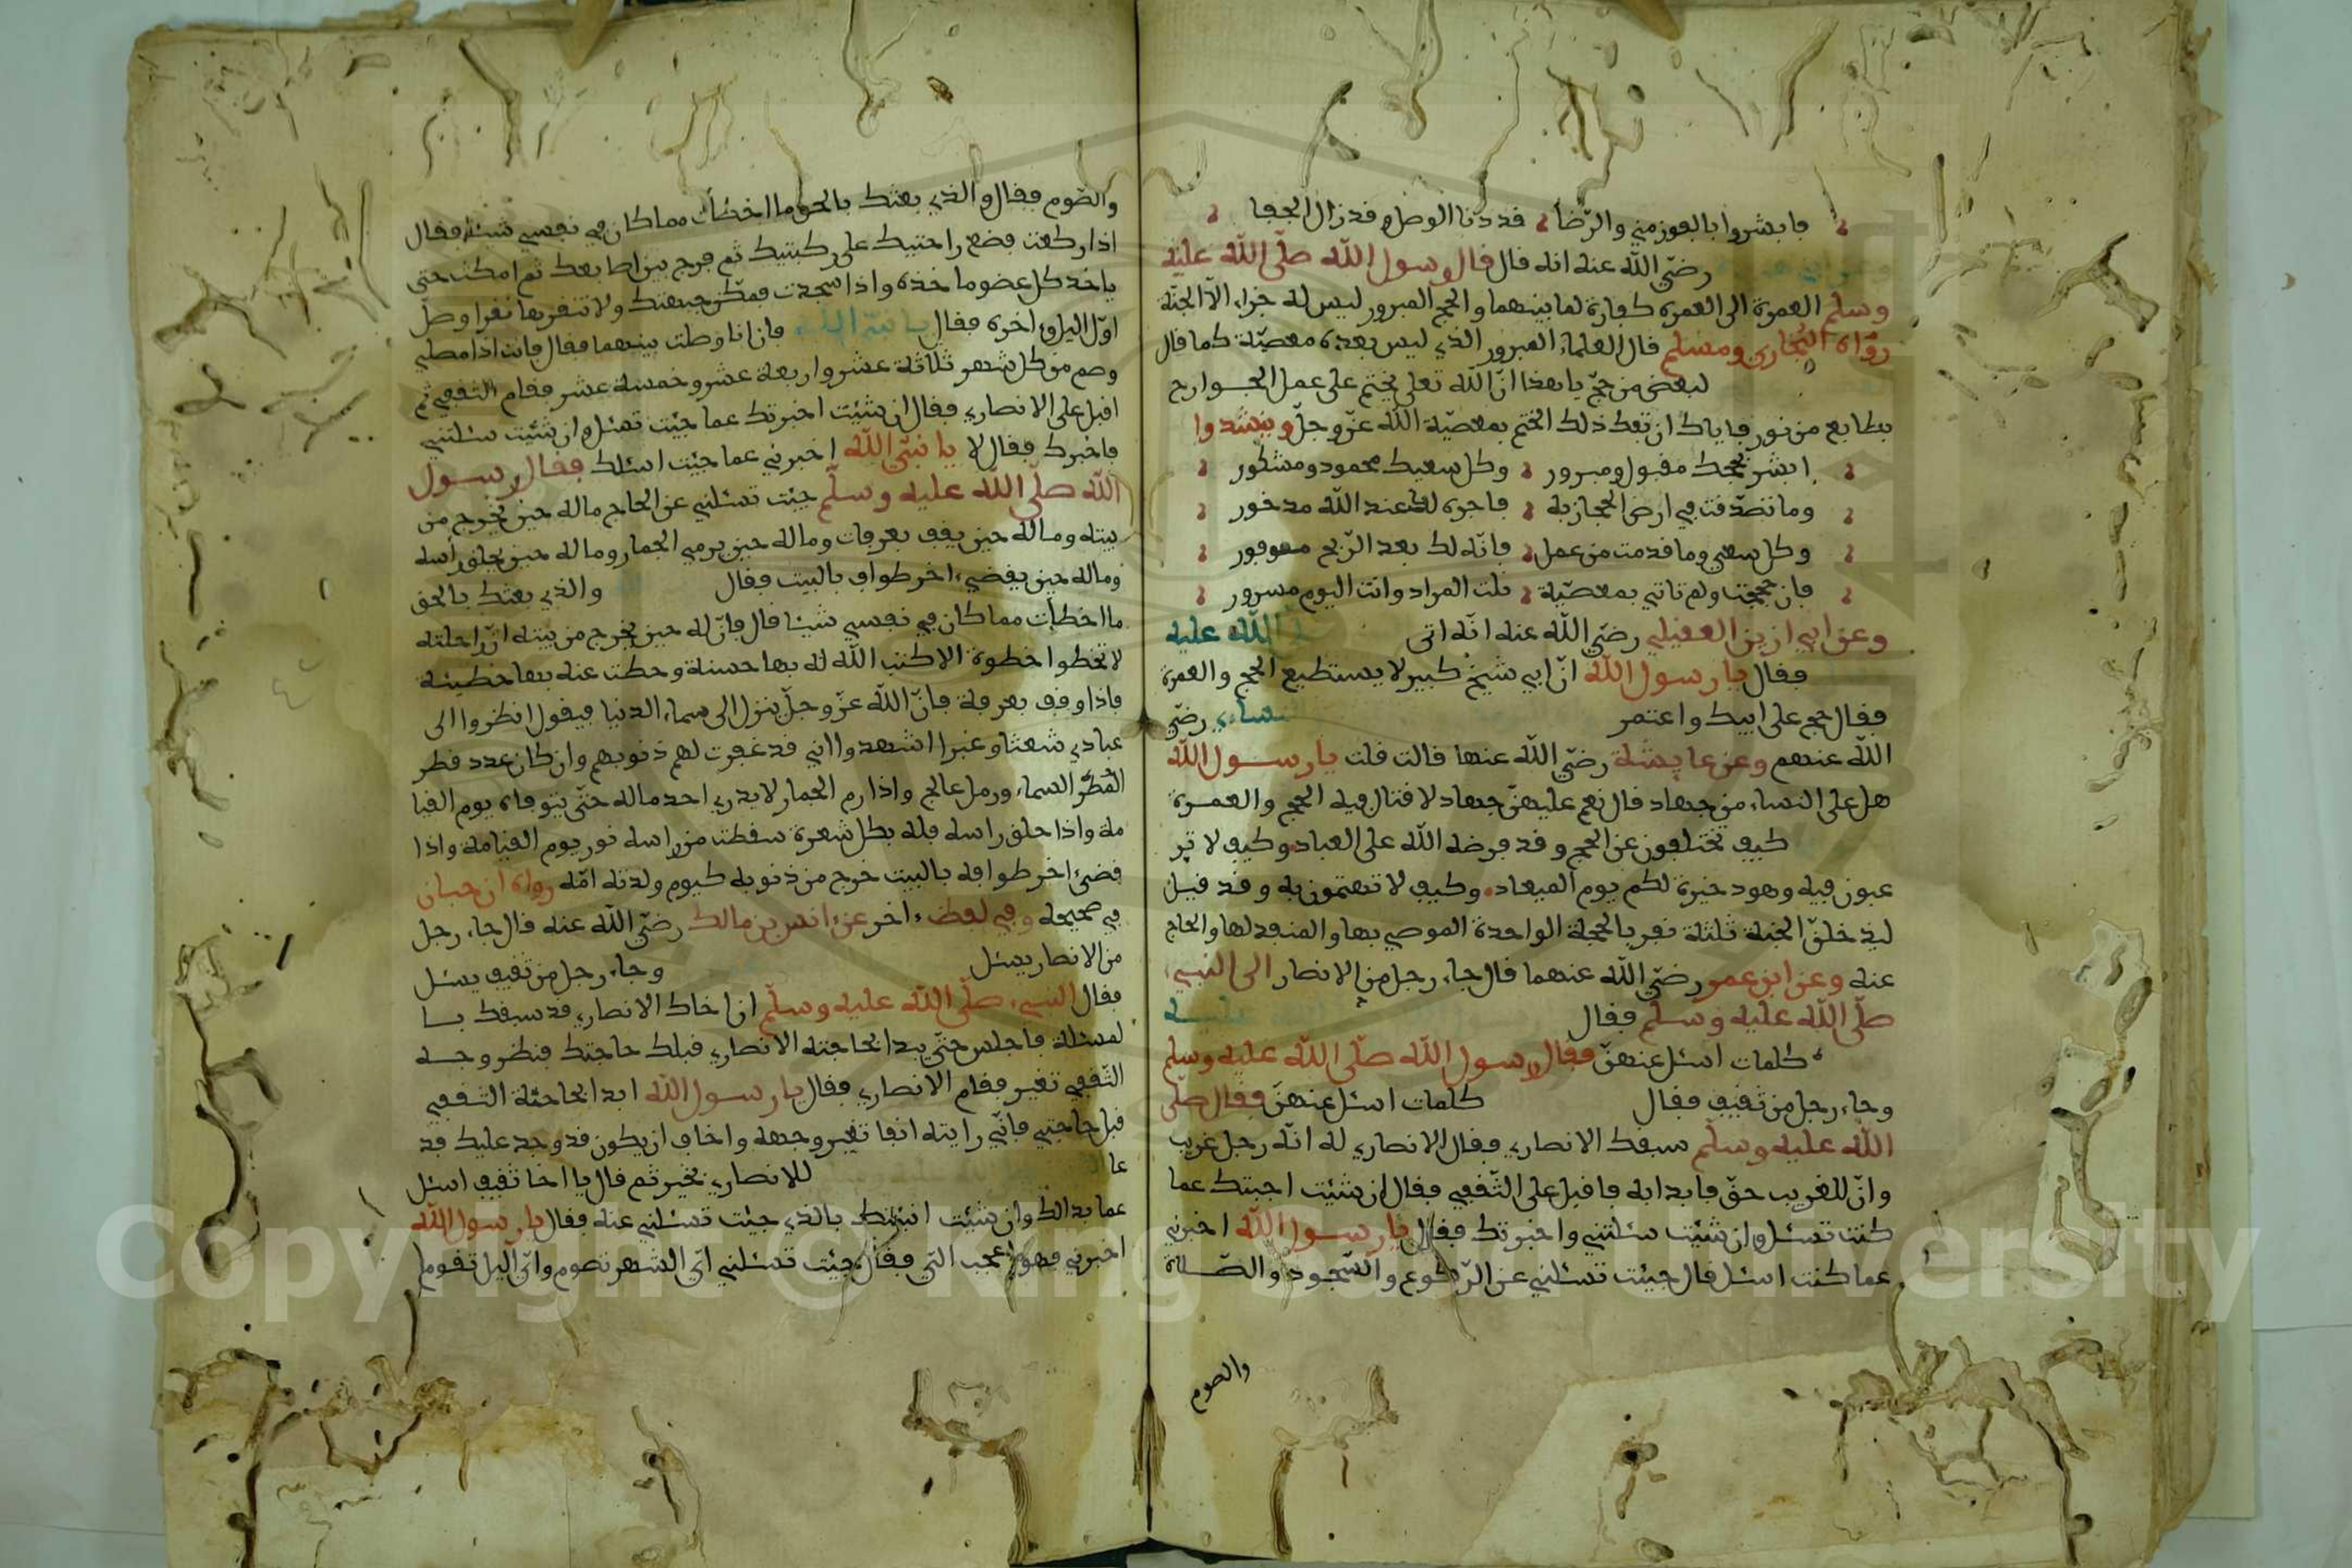 فابشروا بالفوز مني والرّضا قد دنا الوصل وقد زال الجفا
رضيّ الله عنه انه قال قال رسول الله صلّى الله عليه
وسلم العمرة الى العمرة كفارة لما بينهما والحج المبرور ليس له جزاء الاّ الجنّة
رواه البخاري ومسلم قال العلماء المبرور الذي ليس بعده معصيّة كما قال
لبعض من حجّ يا هذا انّ الله تعلى يختم على عمل الجوارح
بطابع من نور فاياك ان تفك ذلك الختم بمعصيّة الله عزّ وجلّ وينشدوا
ابشر بحجك مقبول ومبرور وكل سعيك محمود ومشكور
وما تصدّقت في ارض الحجاز به فاجره لك عند الله مدخور
وكل سعي وما قدمت من عمل فانّه لك بعد الرّبح موفور
فان حججت ولم تاتي بمعصيّة نلت المراد وانت اليوم مسرور
وعن ابي ازين العقيلي رضيّ الله عنه انّه اتى الله عليه
فقال يا رسول الله انّ ابي شيخ كبير لا يستطيع الحج والعمرة
فقال حج على ابيك واعتمر النساءي رضيّ
الله عنهم وعن عايشة رضيّ الله عنها قالت قلت يا رسول الله
هل على النساء من جهاد قال نعم عليهنّ جهاد لا قتال فيه الحج والعمرة
كيف تختلفون عن الحج وقد فرضه الله على العباد وكيف لا تر
غبون فيه وهو دخيرة لكم يوم الميعاد وكيف لا تهتمون به وقد قيل
ليدخلنّ الجنة ثلثة نفر بالحجة الواحدة الموصي بها والمنفد لها والحاج
عنه وعن ابن عمر رضيّ الله عنهما قال جاء رجل من الانصار الى النبيء
صلّى الله عليه وسلم فقال
كلمات اسئل عنهنّ فقال رسول الله صلّى الله عليه وسلم
وجاء رجل من ثقيف فقال كلمات اسئل عنهنّ فقال صلّى
الله عليه وسلّم سبقك الانصاري فقال الانصاري له انّه رجل غريب
وانّ للغريب حقّ فابدا به فاقبل على الثّقفي فقال ان شئت اجبتك عما
كنت تسئل وان شئت سئلتني واخبرتك فقال يا رسول الله اخبرني
عما كنت اسئل قال جئت تسئلني عن الرّكوع والسّجود والصّلاة
والصوم
والصّوم فقال والذي بعثك بالحق ما اخطأت مما كان في نفسي شيئا فقال
اذا ركعت فضع راحتيك على ركبتيك ثم فرج بين اصابعك ثم امكث حتى
ياخذ كل عضو ماخذه واذا سجدت فمكّن جبهتك ولا تنقرها نقرا وصلّ
اوّل اليل واخره فقال يا نبيّ الله فان انا وصلت بينهما فقال فانت اذا مصلي
وصم من كل شهر ثلاثة عشر واربعة عشر وخمسة عشر فقام الثقفي ثم
اقبل على الانصاري فقال ان شئت اخبرتك عما جئت تسئل وان شئت سئلتني
فاخبرك فقال لا يا نبيّ الله اخبرني عما جئت اسئلك فقال رسول
الله صلّى الله عليه وسلّم جئت تسئلني عن الحاج ماله حين يخرج من
بيته وماله حين يقف بعرفات وماله حين يرمي الجمار وماله حين يحلق رأسه
وماله حين يقضيء اخر طواف بالبيت فقال والذي بعثك بالحق
ما اخطأت مما كان في نفسي شيئا قال فانّ له حين يخرج من بيته انّ راحلته
لا تخطوا خطوة الا كتب الله له بها حسنة وحطت عنه بها خطيئة
فاذا وقف بعرفة فانّ الله عزّ وجلّ ينزل الى سماء الدنيا فيقول انظروا الى
عبادي شعثا وغبرا اشهدوا اني قد غفرت لهم ذنوبهم وان كان عدد قطر
القطر السماء ورمل عالج واذا رم الجمار لا يدري احد ماله حتّى يتوفاه يوم القيا
مة واذا حلق راسه فله بكل شعرة سقطت من راسه نور يوم القيامة واذا
قضىء اخر طوافه بالبيت خرج من ذنوبه كيوم ولدته امّه رواه ابن حبان
في صحيحه وفي لفظ ءاخر عن انس بن مالك رضيّ الله عنه قال جاء رجل
من الانصار يسئل وجاء رجل من ثقيف يسئل
فقال النبيء صلّى الله عليه وسلّم ان اخاك الانصاري قد سبقك با
لمسئلة فاجلس حتّى يبدا بحاجته الانصاري قبلك حاجتك فنظر وجه
الثّقفي تغير فقام الانصاري فقال يا رسول الله ابدا بحاجة الثقفي
قبل حاجتي فانّي رايته انفا تغير وجهه واخاف ان يكون قد وجد عليك قد
عا للانصاري بخير ثم قال يا اخا ثقيف اسئل
عما بدالك وان شئت انبئتك بالذي جئت تسئلني عنه فقال يا رسول الله
اخبرني فهو اعجب اليّ فقال جئت تسئلني ايّ الشهر تصوم وايّ اليل تقوم
Copyright © King Saud University